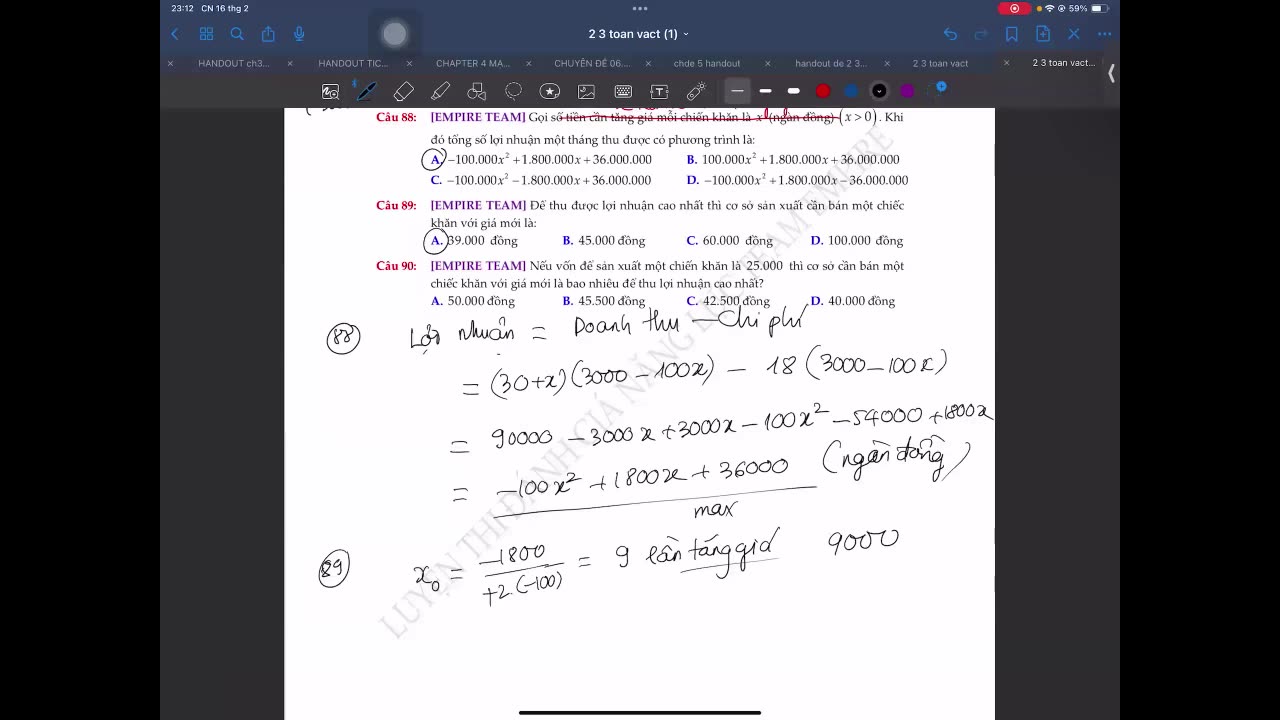 23:12 CN 16 thg 2
59%
2 3 toan vact (1)
HANDOUT ch3...
HANDOUT TIC...
CHAPTER 4 MA...
CHUYÊN ĐỀ 06....
chde 5 handout
handout de 2 3...
2 3 toan vact
2 3 toan vact...
Câu 88: [EMPIRE TEAM] Gọi số tiền cần tăng giá mỗi chiến khăn là x (ngàn đồng) (x > 0). Khi
đó tổng số lợi nhuận một tháng thu được có phương trình là:
A. −100.000x² + 1.800.000x + 36.000.000 B. 100.000x² + 1.800.000x + 36.000.000
C. −100.000x² − 1.800.000x + 36.000.000 D. −100.000x² + 1.800.000x − 36.000.000
Câu 89: [EMPIRE TEAM] Để thu được lợi nhuận cao nhất thì cơ sở sản xuất cần bán một chiếc
khăn với giá mới là:
A. 39.000 đồng B. 45.000 đồng C. 60.000 đồng D. 100.000 đồng
Câu 90: [EMPIRE TEAM] Nếu vốn để sản xuất một chiến khăn là 25.000 thì cơ sở cần bán một
chiếc khăn với giá mới là bao nhiêu để thu lợi nhuận cao nhất?
A. 50.000 đồng B. 45.500 đồng C. 42.500 đồng D. 40.000 đồng
88 Lợi nhuận = Doanh thu − Chi phí
= (30+x)(3000 − 100x) − 18 (3000 − 100x)
= 90000 − 3000x + 3000x − 100x² − 54000 + 1800x
= −100x² + 1800x + 36000 (ngàn đồng)
max
89 x₀ = −1800 / +2.(−100) = 9 lần tăng giá 9000
LUYỆN THI ĐÁNH GIÁ NĂNG LỰC TEAM EMPIRE